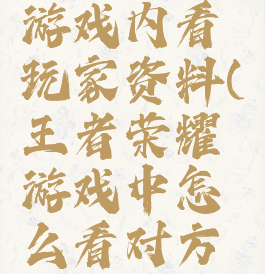 游戏内看
玩家资料(
王者荣耀
游戏中怎
么看对方